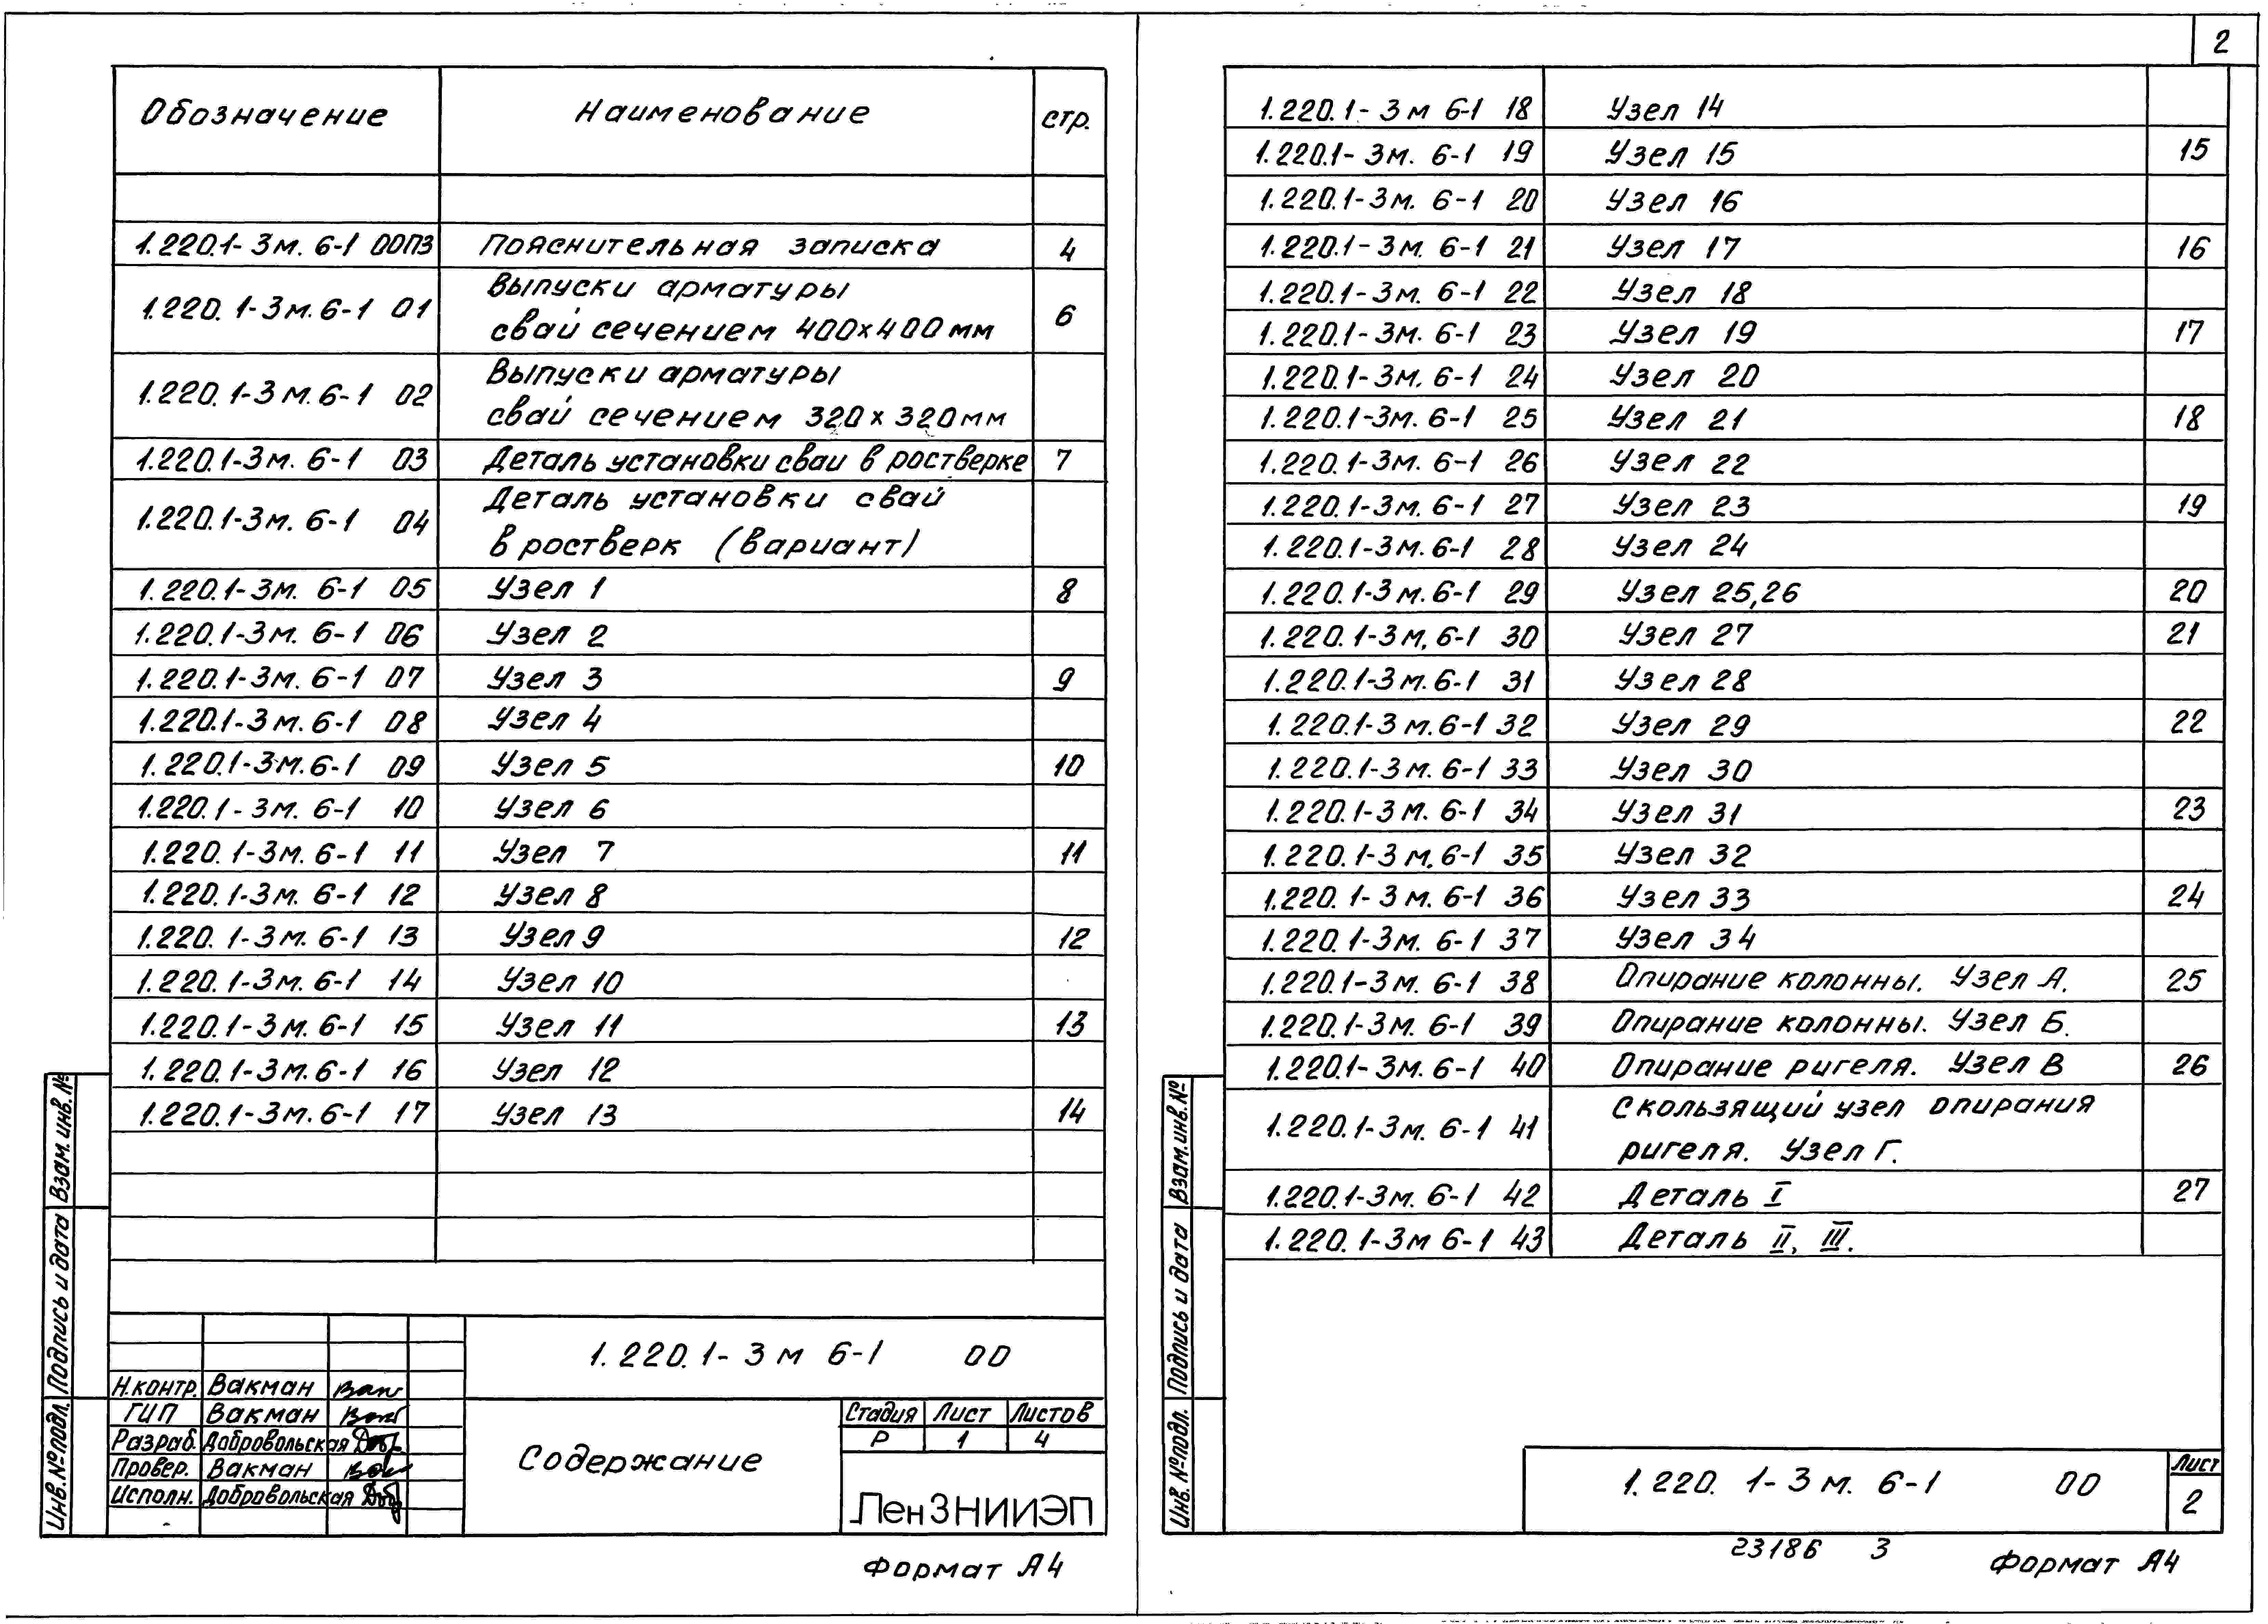 Обозначение Наименование стр.
1.220.1-3м. 6-1 00ПЗ Пояснительная записка 4
1.220.1-3м.6-1 01 Выпуски арматуры
свай сечением 400х400мм 6
1.220.1-3м.6-1 02 Выпуски арматуры
свай сечением 320х320мм
1.220.1-3м. 6-1 03 Деталь установки сваи в ростверке 7
1.220.1-3м. 6-1 04 Деталь установки свай
в ростверк (вариант)
1.220.1-3м. 6-1 05 Узел 1 8
1.220.1-3м. 6-1 06 Узел 2
1.220.1-3м. 6-1 07 Узел 3 9
1.220.1-3м. 6-1 08 Узел 4
1.220.1-3м.6-1 09 Узел 5 10
1.220.1-3м. 6-1 10 Узел 6
1.220.1-3м. 6-1 11 Узел 7 11
1.220.1-3м. 6-1 12 Узел 8
1.220.1-3м. 6-1 13 Узел 9 12
1.220.1-3м. 6-1 14 Узел 10
1.220.1-3м. 6-1 15 Узел 11 13
1.220.1-3м.6-1 16 Узел 12
1.220.1-3м.6-1 17 Узел 13 14
Взам.инв.№
Подпись и дата
Инв.№подл.
1.220.1-3м 6-1 00
Н.контр. Вакман
ГИП Вакман
Разраб. Добровольская
Провер. Вакман
Исполн. Добровольская
Содержание
Стадия Лист Листов
Р 1 4
ЛенЗНИИЭП
Формат А4
2
1.220.1-3м 6-1 18 Узел 14
1.220.1-3м. 6-1 19 Узел 15 15
1.220.1-3м. 6-1 20 Узел 16
1.220.1-3м. 6-1 21 Узел 17 16
1.220.1-3м. 6-1 22 Узел 18
1.220.1-3м. 6-1 23 Узел 19 17
1.220.1-3м. 6-1 24 Узел 20
1.220.1-3м. 6-1 25 Узел 21 18
1.220.1-3м. 6-1 26 Узел 22
1.220.1-3м. 6-1 27 Узел 23 19
1.220.1-3м.6-1 28 Узел 24
1.220.1-3м.6-1 29 Узел 25,26 20
1.220.1-3м, 6-1 30 Узел 27 21
1.220.1-3м.6-1 31 Узел 28
1.220.1-3м.6-1 32 Узел 29 22
1.220.1-3м. 6-1 33 Узел 30
1.220.1-3м. 6-1 34 Узел 31 23
1.220.1-3м.6-1 35 Узел 32
1.220.1-3м. 6-1 36 Узел 33 24
1.220.1-3м. 6-1 37 Узел 34
1.220.1-3м. 6-1 38 Опирание колонны. Узел А. 25
1.220.1-3м. 6-1 39 Опирание колонны. Узел Б.
1.220.1-3м. 6-1 40 Опирание ригеля. Узел В 26
1.220.1-3м. 6-1 41 Скользящий узел опирания
ригеля. Узел Г.
1.220.1-3м. 6-1 42 Деталь I 27
1.220.1-3м 6-1 43 Деталь II, III.
Взам.инв.№
Подпись и дата
Инв.№подл.
1.220.1-3м. 6-1 00
Лист
2
23186 3
Формат А4